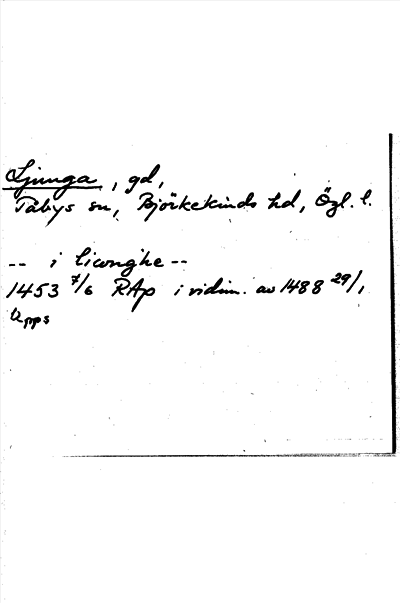 Ljunga, gd,
Tåbys sn, Björkekinds hd, Ögl. l.
-- i liconghe --
1453 7/6 RAp i vidim. av 1488 29/1,
Upps